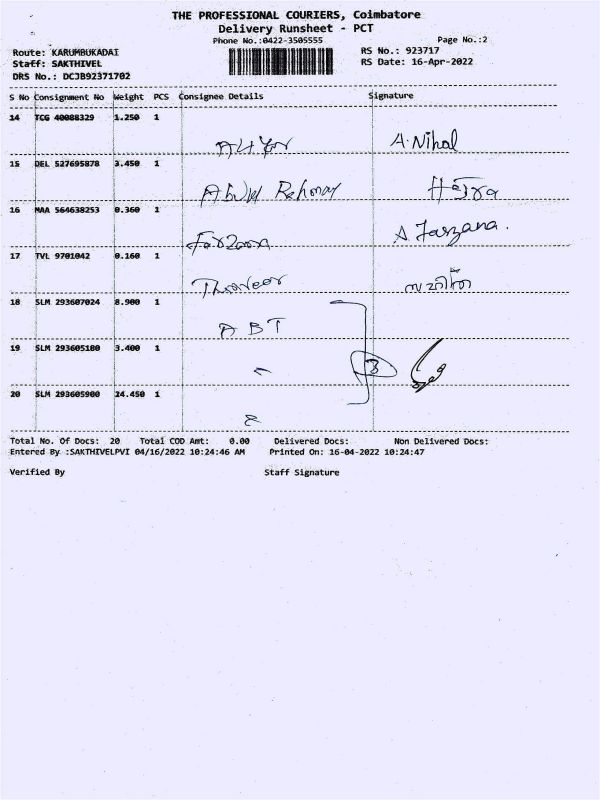 THE PROFESSIONAL COURIERS, Coimbatore
Delivery Runsheet - PCT
Phone No.:0422-3505555 Page No.:2
Route: KARUMBUKADAI RS No.: 923717
Staff: SAKTHIVEL RS Date: 16-Apr-2022
DRS No.: DCJB92371702
S No Consignment No Weight PCS Consignee Details Signature
14 TCG 40088329 1.250 1
A. Nihal
15 DEL 527695878 3.450 1
Abdul Rehman
16 MAA 564638253 0.360 1
Farzana A. Farzana.
17 TVL 9701042 0.160 1
18 SLM 293607024 8.900 1
ABT
19 SLM 293605180 3.400 1
3
20 SLM 293605900 14.450 1
Total No. Of Docs: 20 Total COD Amt: 0.00 Delivered Docs: Non Delivered Docs:
Entered By :SAKTHIVELPVI 04/16/2022 10:24:46 AM Printed On: 16-04-2022 10:24:47
Verified By Staff Signature